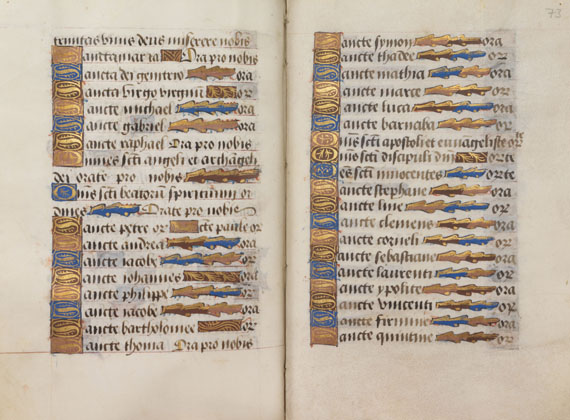 trinitas unus deus miserere nobis
Sancta maria Ora pro nobis
Sancta dei genitrix ora
Sancta virgo virginum or
Sancte michael ora
Sancte gabriel ora
Sancte raphael Ora pro nobis
Omnes scti angeli et archangeli
dei orate pro nobis
Omnes scti beatorum spirituum or
dines Orate pro nobis
Sancte petre or Scte paule or
Sancte andrea ora
Sancte iacobe ora
Sancte iohannes or
Sancte philippe ora
Sancte iacobe ora
Sancte bartholomee or
Sancte thoma Ora pro nobis
73
Sancte symon ora
Sancte thadee or
Sancte mathia ora
Sancte marce or
Sancte luca or
Sancte barnaba or
Ons scti apostoli et euuagelisте orte
Ons scti discipuli dni orte
Oes scti innocentes orte
Sancte stephane ora
Sancte line or
Sancte clemens ora
Sancte corneli or
Sancte sebastiane ora
Sancte laurenti or
Sancte ypolite ora
Sancte vincenti or
Sancte firmine ora
Sancte quintine or